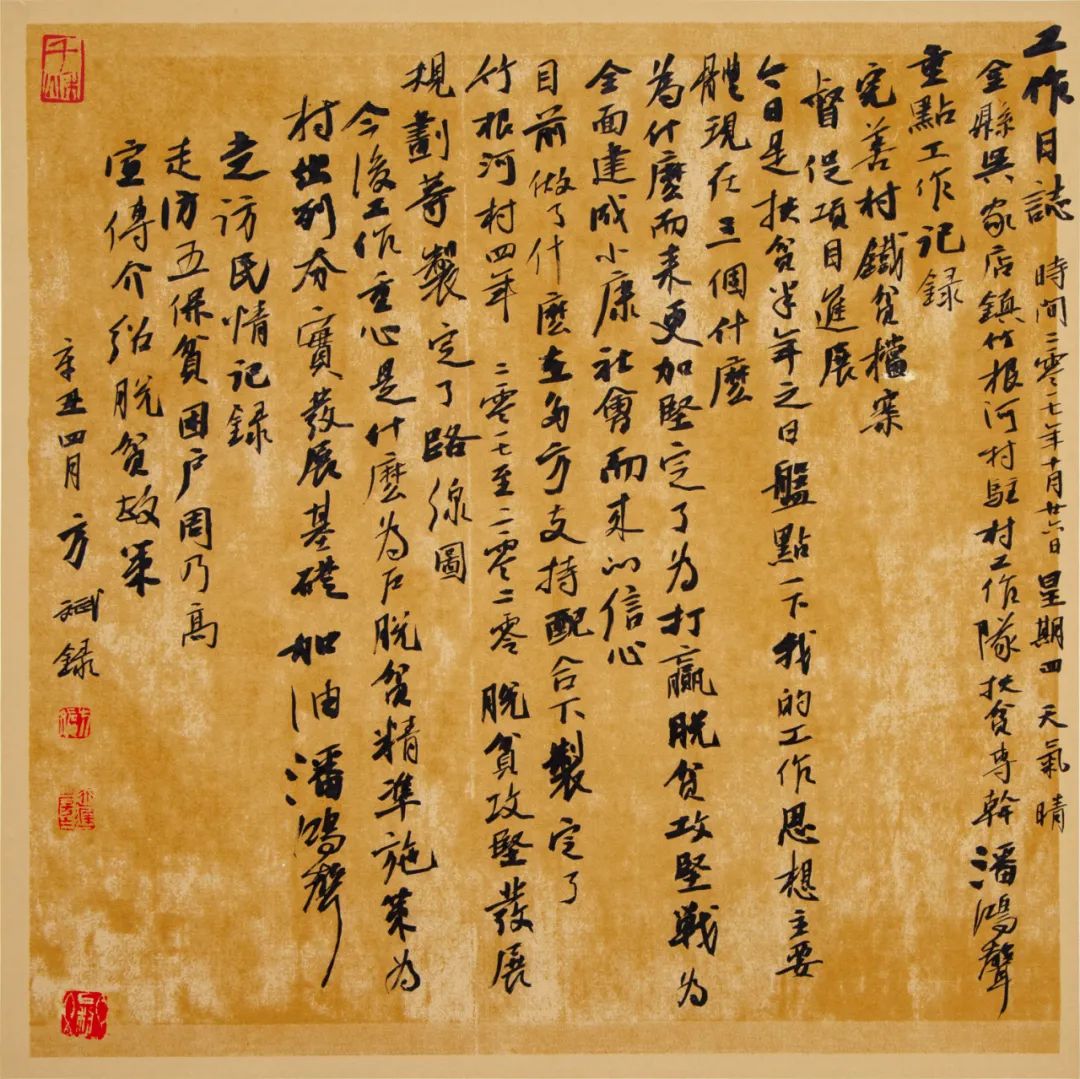 工作日誌 時间二零一七年十月廿六日星期四 天氣晴
金縣吳家店鎮竹根河村駐村工作隊扶貧專幹潘鴻聲
重點工作记録
完善村鐵貧檔案
督促項目進展
今日是扶貧半年之日盤點一下我的工作思想主要
體現在三個什麼
為什麼而来更加堅定了为打贏脱貧攻堅戰为
全面建成小康社會而来的信心
目前做了什麼在多方支持配合下製定了
竹根河村四年 二零一七至二零二零 脱貧攻堅發展
規劃等製定了路線圖
今後工作重心是什麼为户脱貧精準施策为
村出列夯實發展基礎 加油潘鴻聲
走访民情记録
走访五保貧困户周乃高
宣傳介紹脱貧政策
辛丑四月方斌録